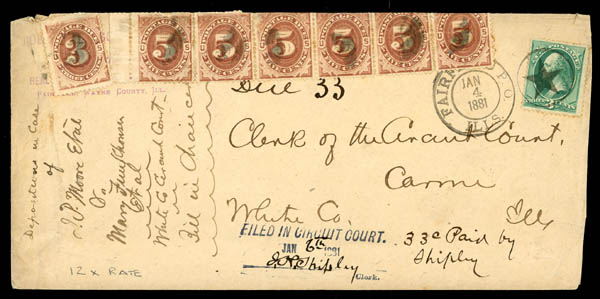 3 5 5 5 5 5 5
WAYNE COUNTY, ILL.
Due 33
FAIRFIELD P.O.
JAN
4
1881
ILLS.
Clerk of the Circuit Court,
Carmi
White Co. Ills
FILED IN CIRCUIT COURT.
JAN 6th 1881
Shipley
Clerk.
33c Paid by
Shipley
Depositions in Case
of
J.P. Moore Etal
Vs
Mary Funkhouser
Et al
White Co Circuit Court
Bill in Chancery
12 x RATE